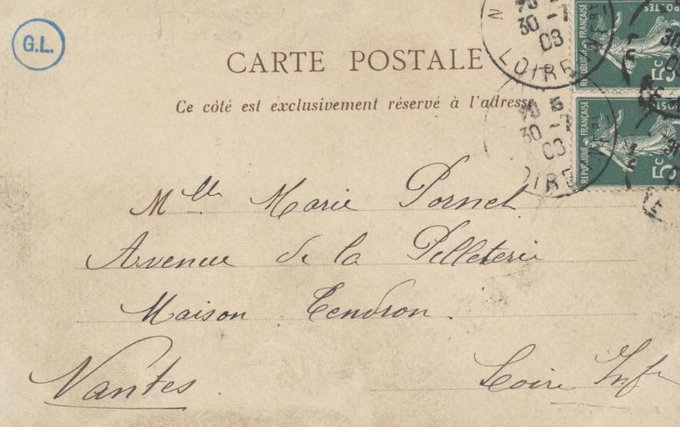 G.L.
CARTE POSTALE
Ce côté est exclusivement réservé à l'adresse
LOIRE
30
08
LOIRE
30
08
REPUBLIQUE FRANÇAISE
POSTES
5c
REPUBLIQUE FRANÇAISE
5c
Mlle Marie Pornet
Avenue de la Pelleterie
Maison Tendron.
Nantes.
Loire Infre